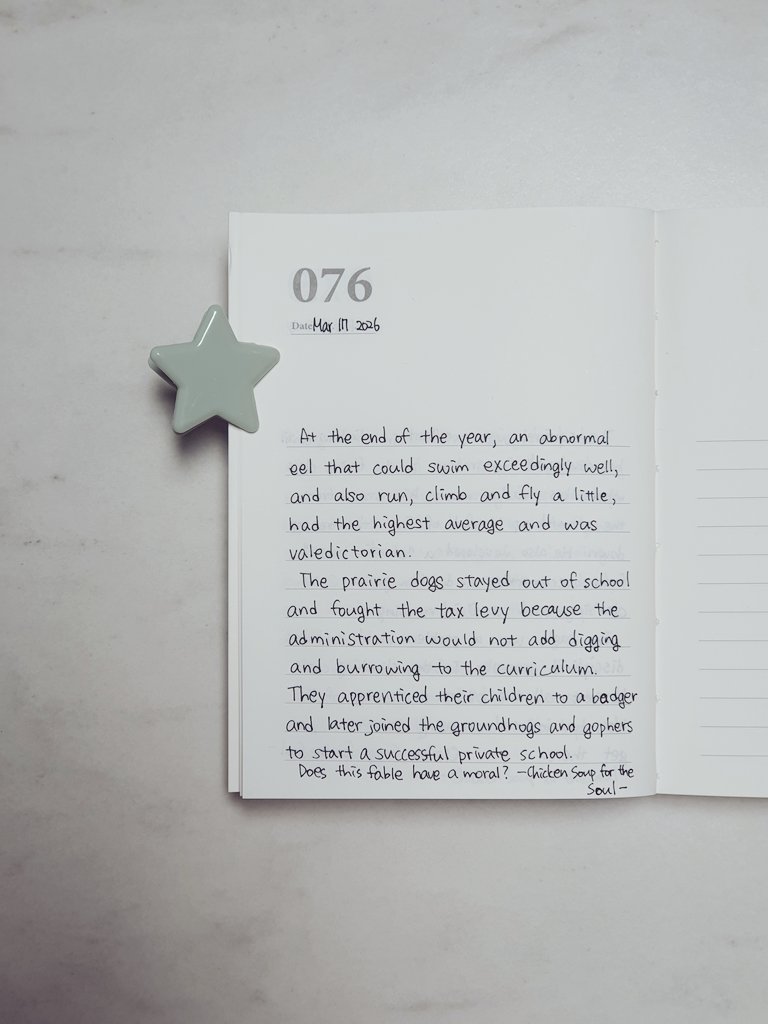 076
Date Mar 17 2026
At the end of the year, an abnormal
eel that could swim exceedingly well,
and also run, climb and fly a little,
had the highest average and was
valedictorian.
The prairie dogs stayed out of school
and fought the tax levy because the
administration would not add digging
and burrowing to the curriculum.
They apprenticed their children to a badger
and later joined the groundhogs and gophers
to start a successful private school.
Does this fable have a moral? -Chicken Soup for the
Soul-